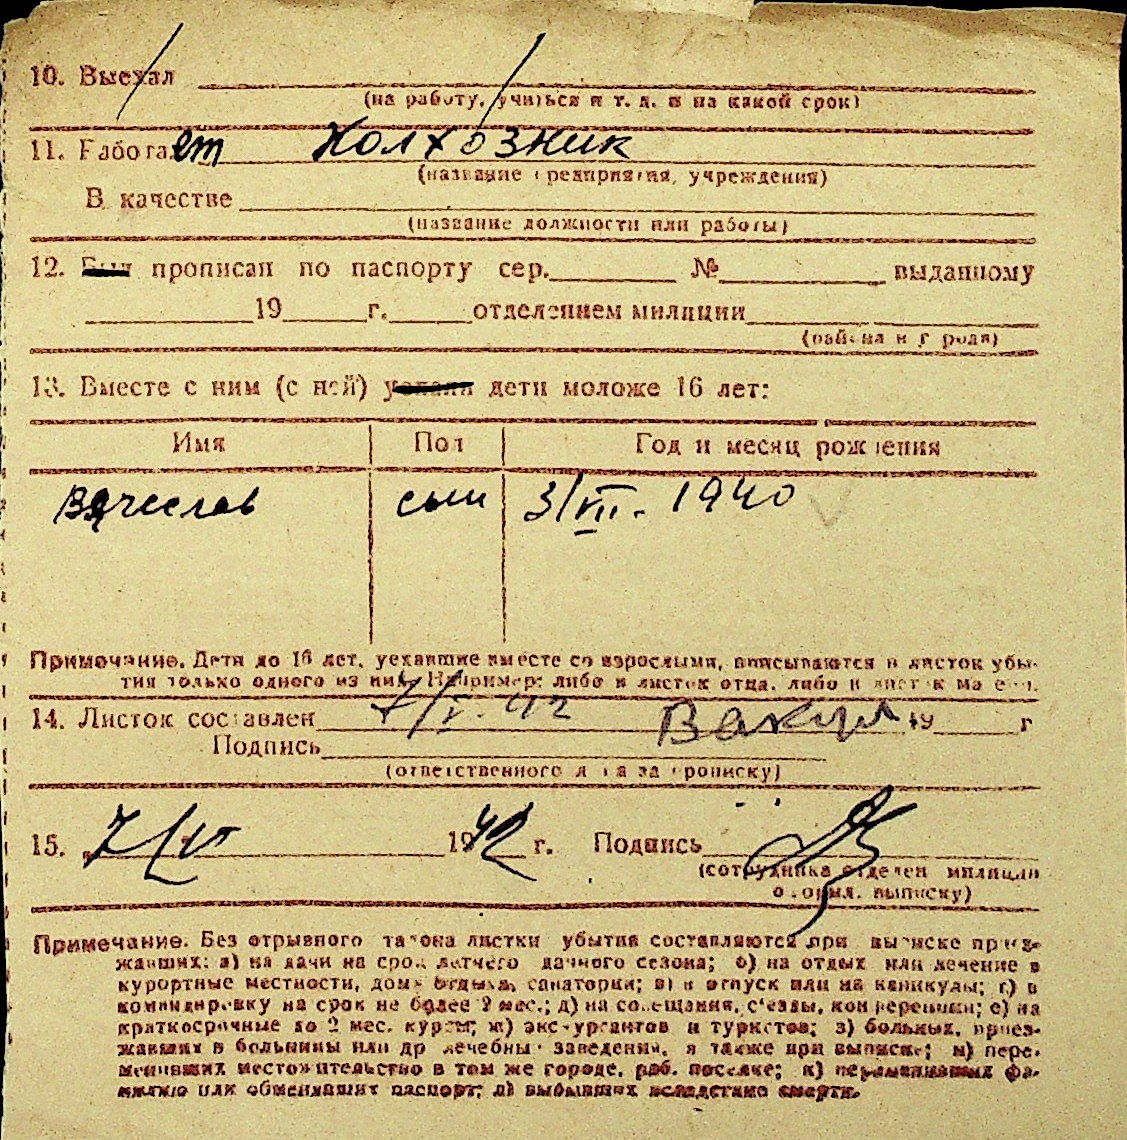 10. Выехал
(на работу, учиться и т. д. и на какой срок)
11. Работает Колхозник
(название предприятия, учреждения)
В качестве
(название должности или работы)
12. Был прописан по паспорту сер. № выданному
19 г. отделением милиции
(района и города)
13. Вместе с ним (с ней) уехали дети моложе 16 лет:
Имя Пол Год и месяц рождения
Вячеслав сын 3/VII. 1940
Примечание. Дети до 16 лет, уехавшие вместе со взрослыми, вписываются в листок убы-
тия только одного из них. Например: либо в листок отца, либо в листок матери.
14. Листок составлен 7/V. 42 19 г
Подпись
(ответственного лица за прописку)
15. 7/VI 1942 г. Подпись
(сотрудника отделен. милиции
оформл. выписку)
Примечание. Без отрывного талона листки убытия составляются при выписке приез-
жавших: а) на дачи на срок летнего дачного сезона; б) на отдых или лечение в
курортные местности, дома отдыха, санатории; в) в отпуск или на каникулы; г) в
командировку на срок не более 2 мес.; д) на совещания, съезды, конференции; е) на
краткосрочные до 2 мес. курсы; ж) экскурсантов и туристов; з) больных, приез-
жавших в больницы или др лечебны заведения, а также при выписке; и) пере-
менивших местожительство в том же городе, раб. поселке; к) переменивших фа-
милию или обменявших паспорт; л) выбывших вследствие смерти.